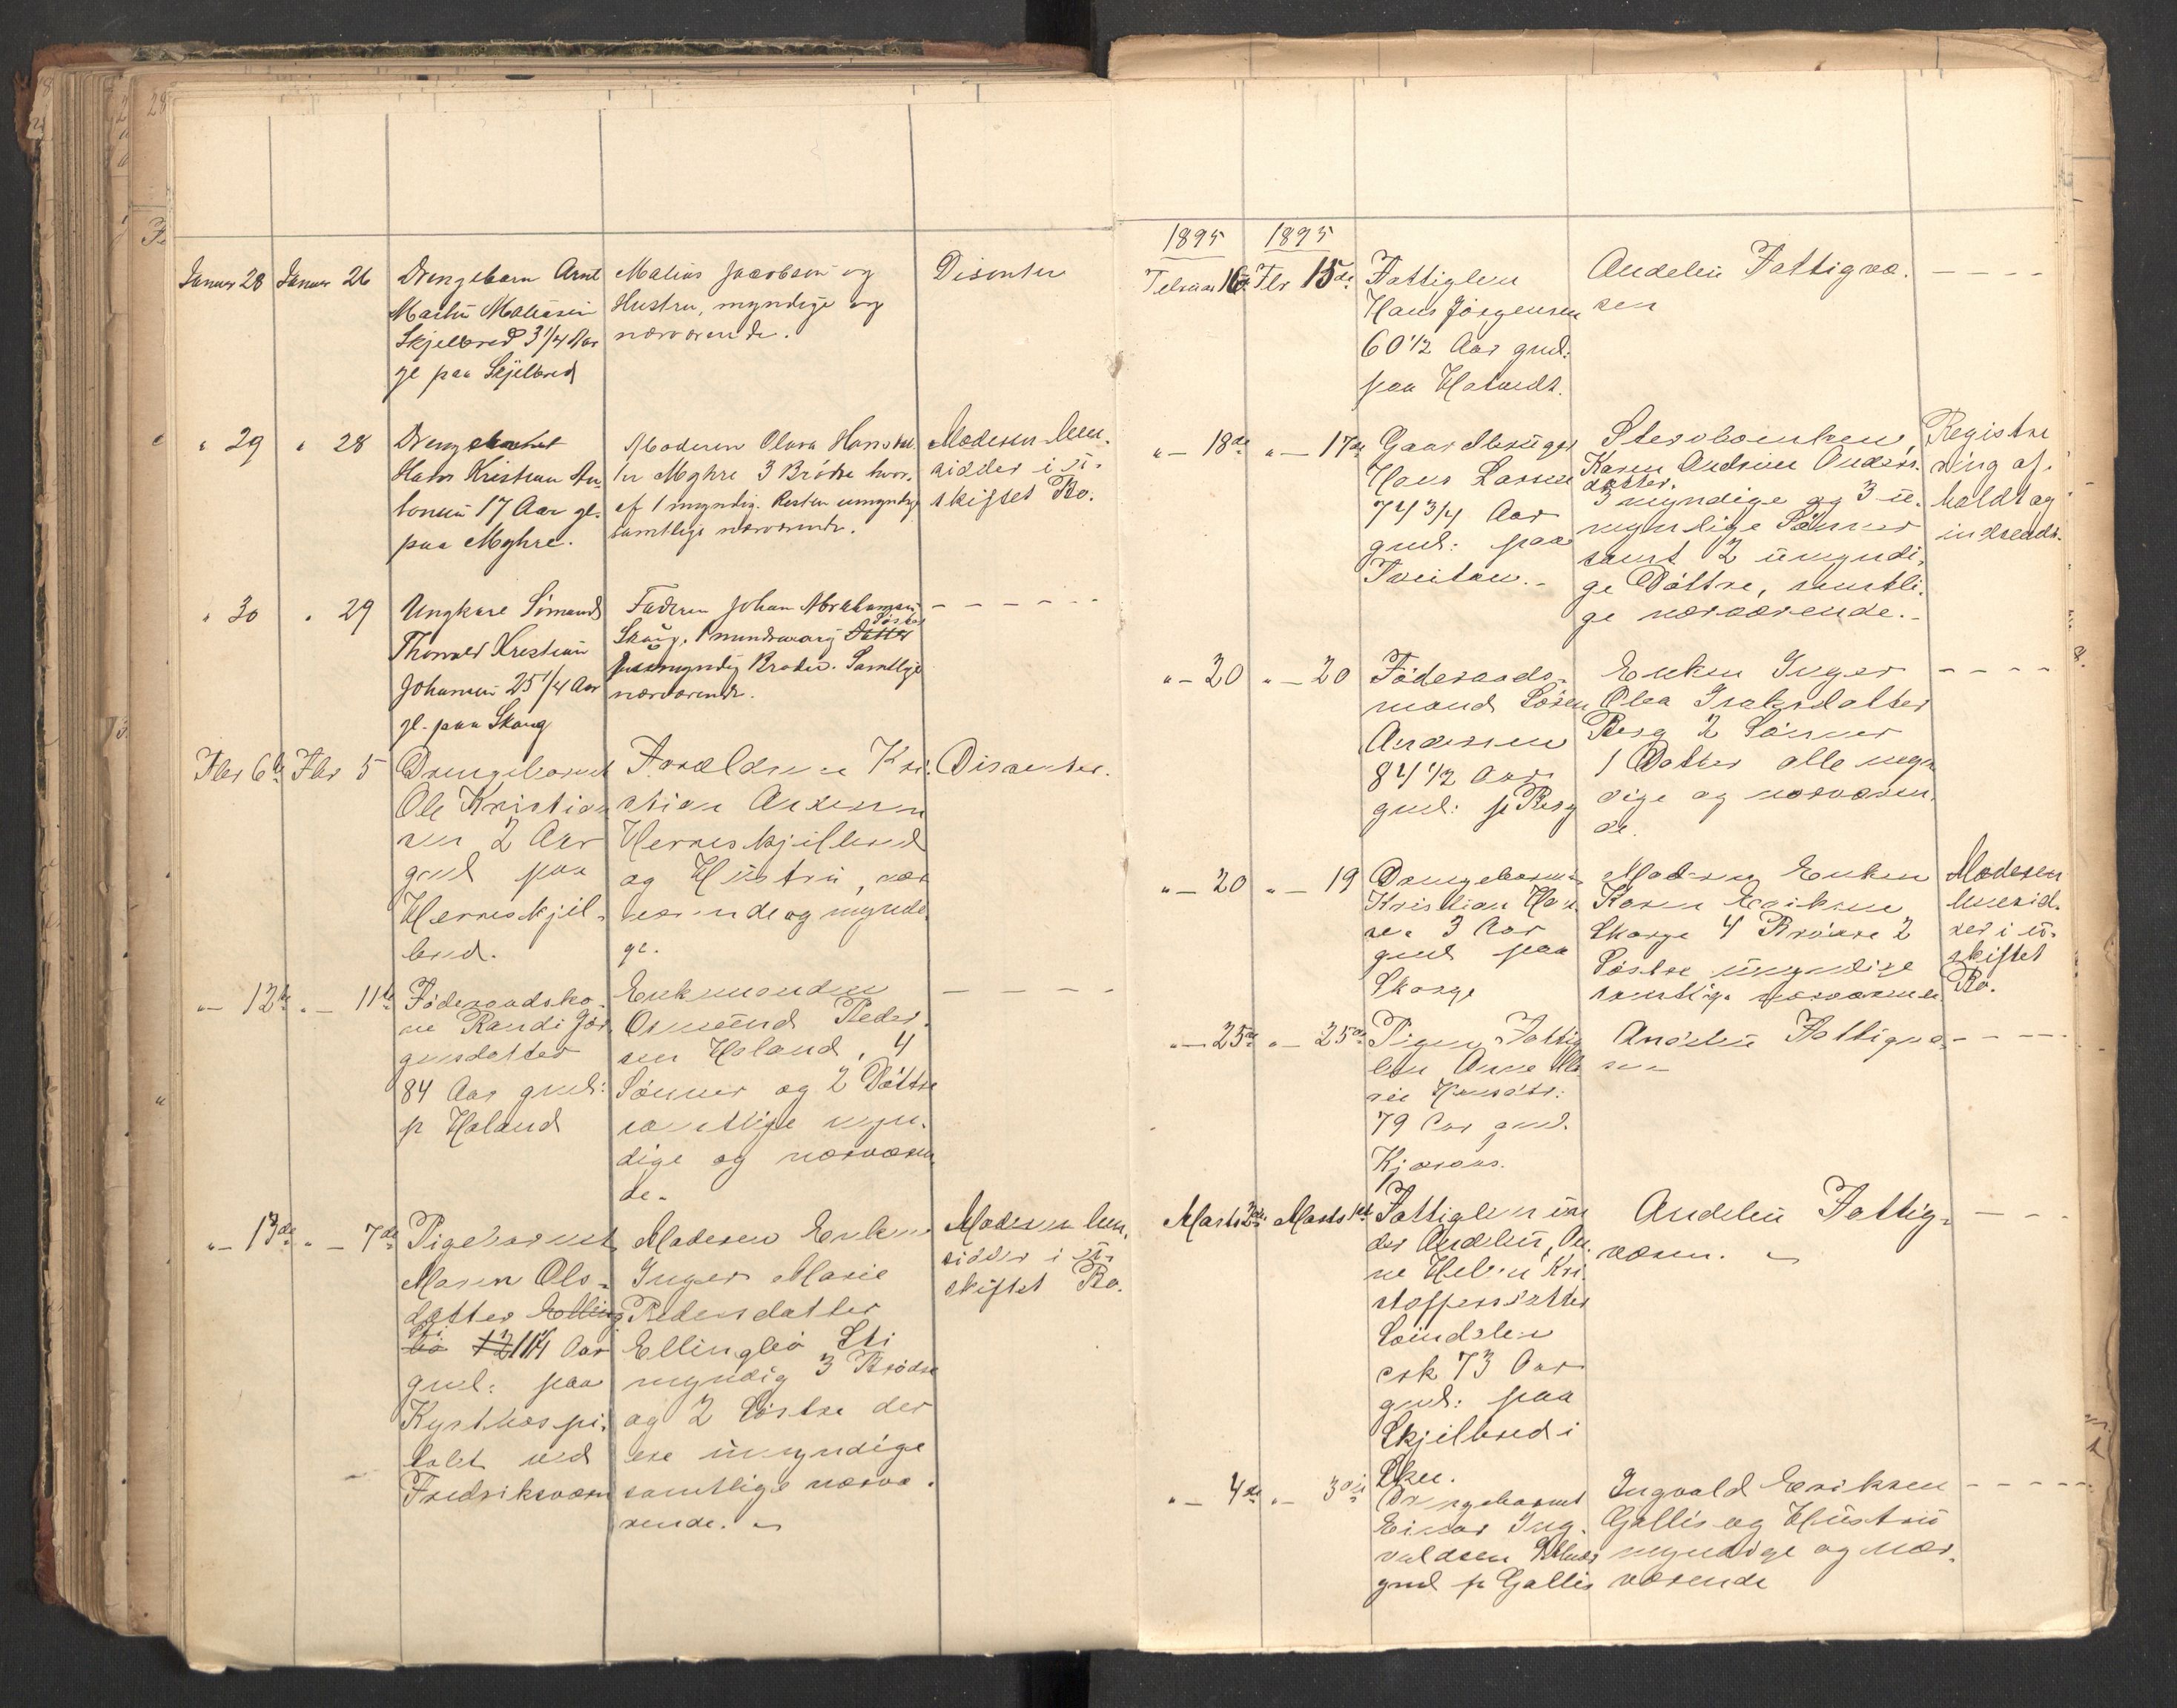 Januar 28 Januar 26 Drengebarn Arnt
Martin Mathisen
Skjelbred 3 1/4 Aar
gl paa Skjelbred
Hustru, myndige og
nærværende.
Disenter
" 29 " 28 Drengebarnet
Hans Kristian An-
tonsen 17 Aar gl.
paa Myhre.
Moderen Olava
Myhre 3 Brödre hvor-
af 1 myndig. Resten umyndige
samtlige nærværende.
Moderen hen-
sidder i u-
skiftet Bo.
" 30 " 29 Ungkarl Sömand
Thorvald Kristian
Johansen 25 1/4 Aar
gl. paa Skaug
Faderen Johan Abrahamsen
Söster
Skaug, 1 mindreaarig Datter
umyndig Broder. Samtlige
nærværende.
Fbr 6te Fbr 5 Drengebarnet
Ole Kristian
sen 2 Aar
gml paa
Herreskjel-
bred.
Forældrene Kri-
stian Andersen
Herreskjelbred
og Hustru, nær
værende og myndi-
ge.
Disenter.
" 12te " 11te Föderaadsko-
ne Randi Jör
gensdatter
84 Aar gml:
p Holand
Enkemanden
Osmund Peder-
sen Holand, 4
Sönner og 2 Döttre
samtlige myn-
dige og nærværen-
de.
" 13de " 7de Pigebarnet
Maren Ols-
datter Elling
Sti
bö 12 11 1/4 Aar
gml: paa
Kysthospi-
talet ved
Fredriksværn
Moderen Enken
Inger Marie
Pedersdatter
Ellingbö Sti
myndig 3 Brödre
og 2 Söstre der
ere umyndige
samtlige nærvæ-
rende.
Moderen hen-
sidder i u-
skiftet Bo.
1895 1895
Februar 16de Fbr 15de Fattiglem
Hans Jörgensen
60 1/2 Aar gml:
paa
Andebu Fattigvæ-
sen
" 18de " 17de Gaardbruger
Hans Larsen
74 3/4 Aar
gml: paa
Tveitan.
Stervboenken,
Karen Andrine Anders-
datter.
3 myndige og 3 u-
myndige Sönner
samt 2 umyndi-
ge Döttre, samtli-
ge nærværende.
Registre
ring af-
holdt og
indsendt.
" 20 " 20 Föderaads-
mand Sören
Andersen
84 1/2 Aar
gml: p Berg
Enken Inger
Olea Isaksdatter
Berg 2 Sönner
1 Datter alle myn
dige og nærværen-
de.
" 20 " 19 Drengebarnet
Kristian Han-
sen 3 Aar
gml paa
Skorge
Moderen Enken
Karen Eriksen
Skorge 4 Brödre 2
Söstre umyndige
samtlige nærværende
Moderen
hensid-
der i u-
skiftet
Bo.
" 25de " 25de Pigen Fattig
lem Anne Ma
rie
79 Aar gml.
Kjæraas.
Andebu Fattigvæ-
sen
Marts 2den Marts 1ste Fattiglem un
der Andebu, An-
ne Helvi Kri-
stoffersdatter
Sundslen
crk 73 Aar
gml: paa
Skjelbred i
Sken.
Andebu Fattig-
væsen.
" 4de " 3die Drengebarnet
Einar Ing-
valdsen
gml p Gallis
Ingvald Eriksen
Gallis og Hustru
myndige og nær-
værende